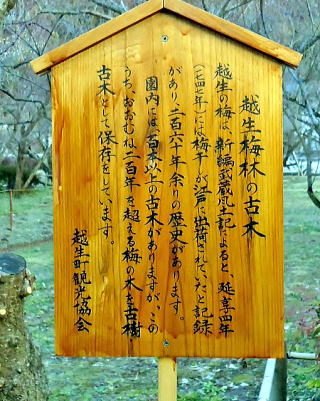 越生梅林の古木
越生の梅は、新編武蔵風土記によると、延享四年
(一七四七年)には梅干が江戸に出荷されていたと記録
があり、二百六十年余りの歴史があります。
園内には、百本以上の古木がありますが、この
うち、おおむね二百年を超える梅の木を古樹
古木として保存をしています。
越生町観光協会